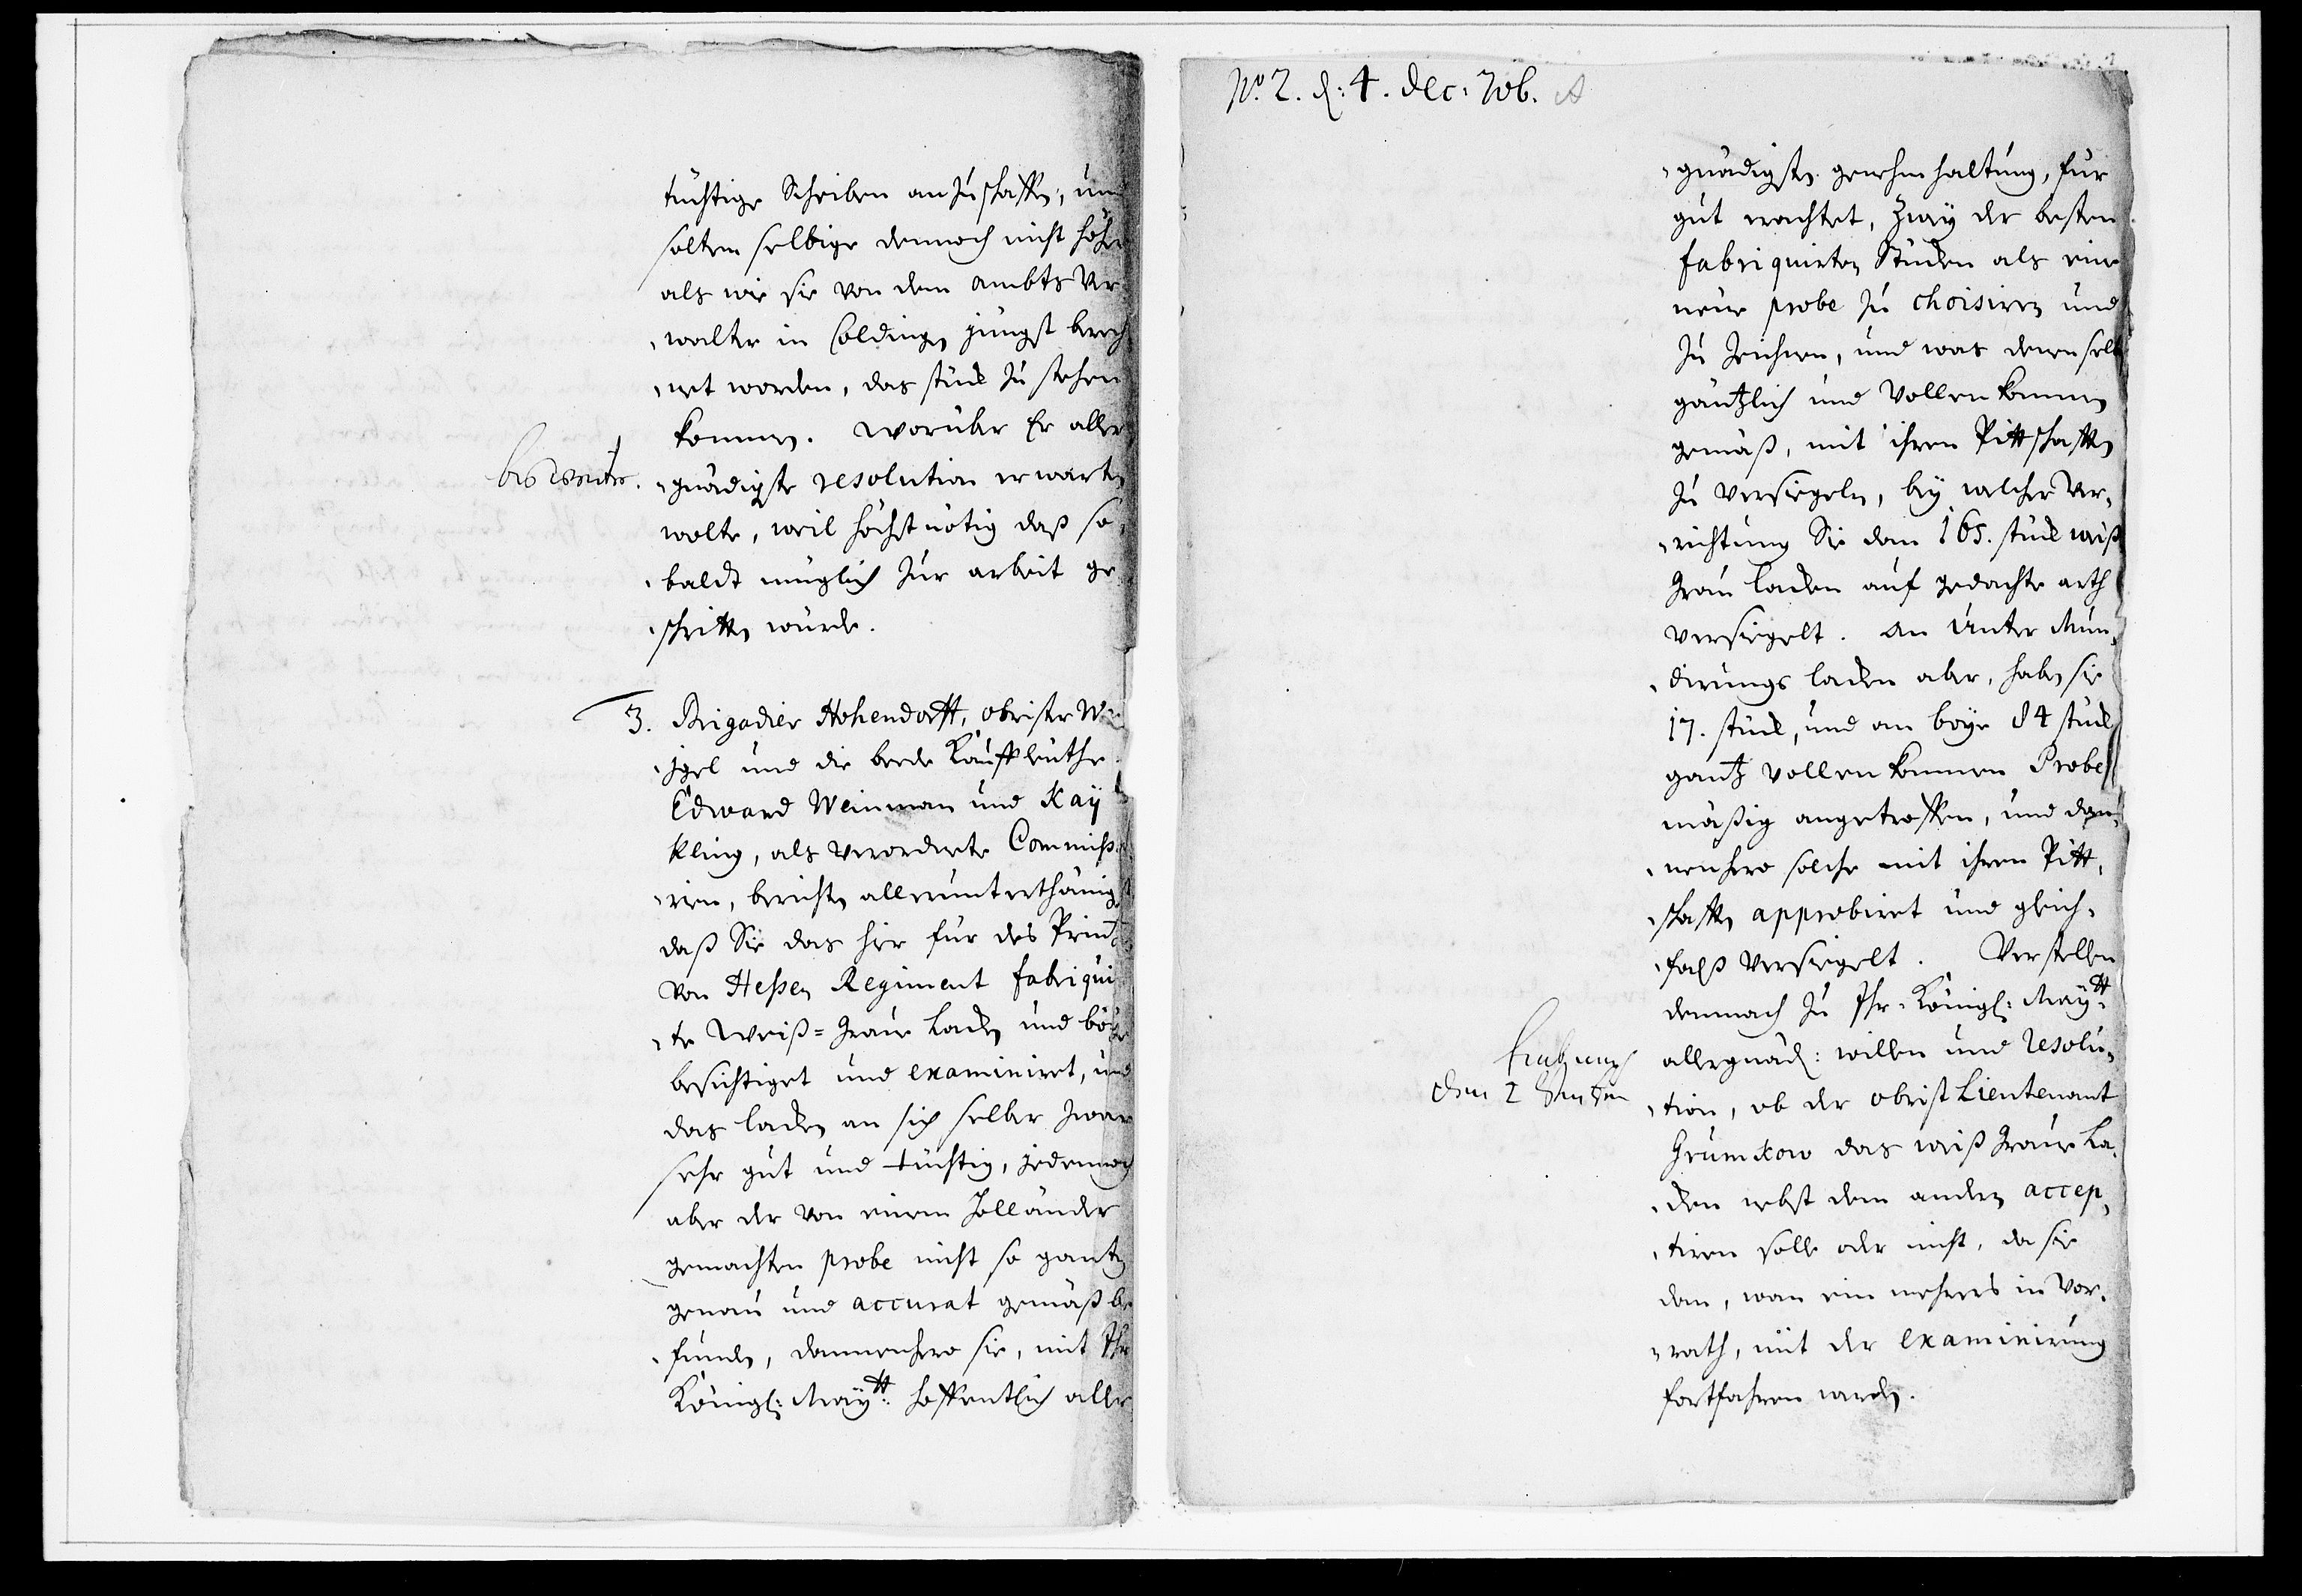 tüchtige Schreiben anzuschaffen, und
solten selbige dennoch nicht höher
als wie sie von dem ambts Ver-
-walter in Coldingen jüngst berech
-net worden, das stück zu stehen
kommen. Worüber Er aller
-gnädigste resolution erwarten
wolte, weil höchst nötig daß so
-baldt müglich zur arbeit ge
-schritten würde.
3. Brigadier Hohendorff, obrister
und die beede Kauffleuthe
Edward Weinman und Kay
Kling, als verordnete Commissa
-rien, berichten allerunterthänigst
daß Sie das hier für des Printz
von Hessen Regiment fabriquir
-te Weiß-Graue Laken und böye
besichtiget und examiniret, und
das laken an sich selber zwar
sehr gut und tüchtig, jedennoch
aber der von einem Holländer
gemachten probe nicht so gantz
genau und accurat gemäß be
-funden, dannenhero sie, mit Ihr
Königl: Maytt: hoffentlich aller
No. 2. d: 4. Dec: 706. A
-gnädigsten genehmhaltung, für
gut erachtet, Zwey der besten
fabriquirten Stücken als eine
neue probe zu choisiren und
zu zeichnen, und was denenselb
gäntzlich und vollenkommen
gemäß, mit ihren Pittschafften
zu versiegeln, bey welcher Ver-
-richtung Sie dan 165. stück weiß
Grau laken auf gedachte arth
versiegelt. An Unter Mun-
-dirungs laken aber, haben sie
17. stück, und an boye 84 stück
gantz vollenkommen Probe
mäßig angetroffen, und dan-
-nenhero solche mit ihren Pitt-
-schafften approbiret und gleich-
-fals versiegelt. Verstellen
demnach zu Ihr. Königl: Maytt:
allergnäd: willen und resolu-
-tion, ob der obrist Lieutenant
Grumkow das weiß graue La-
-ken nebst dem andern accep-
-tiren solle oder nicht, da sie
dan, wan ein mehrers in Vor-
-rath, mit der examinirung
fortfahren werden.